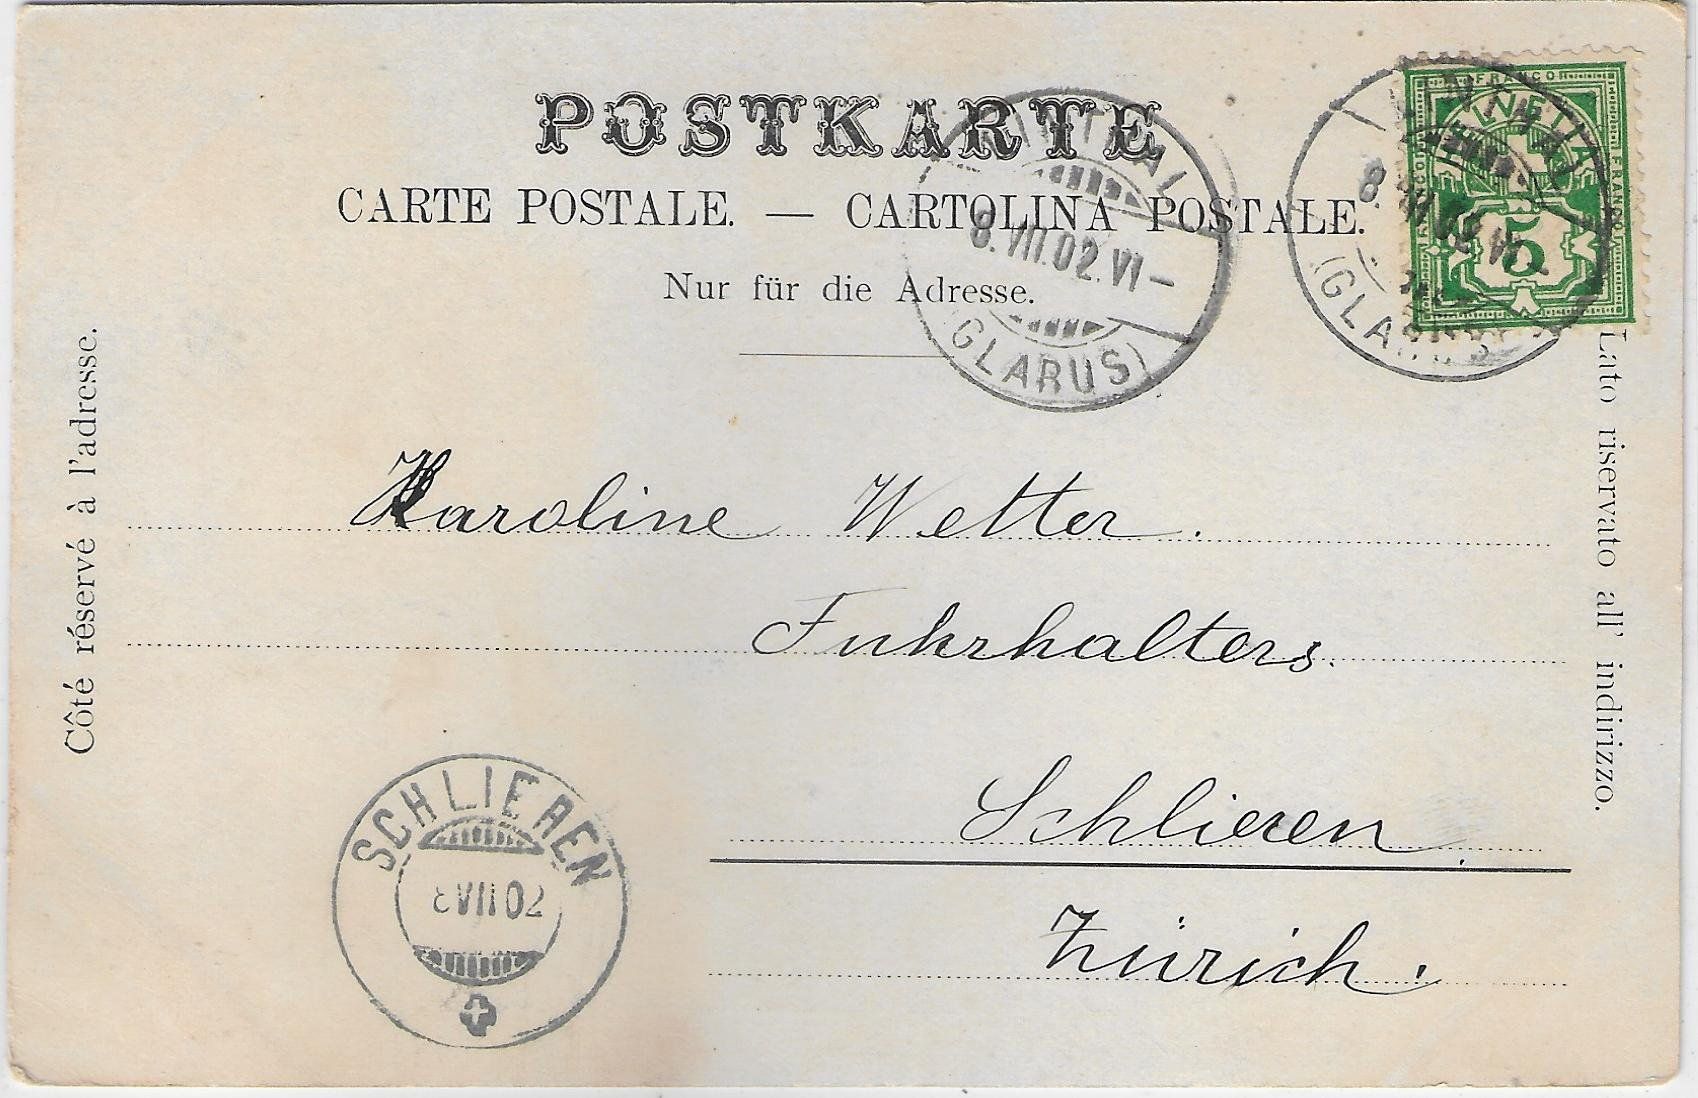 POSTKARTE
CARTE POSTALE. — CARTOLINA POSTALE.
Nur für die Adresse.
Côté réservé à l'adresse.
Lato riservato all' indirizzo.
FRANCO
FRANCO
5
8.VII.02.VI-
(GLARUS)
8.
(GLARUS
Karoline Wetter.
Fuhrhalters.
Schlieren.
Zürich.
SCHLIEREN
8VII02